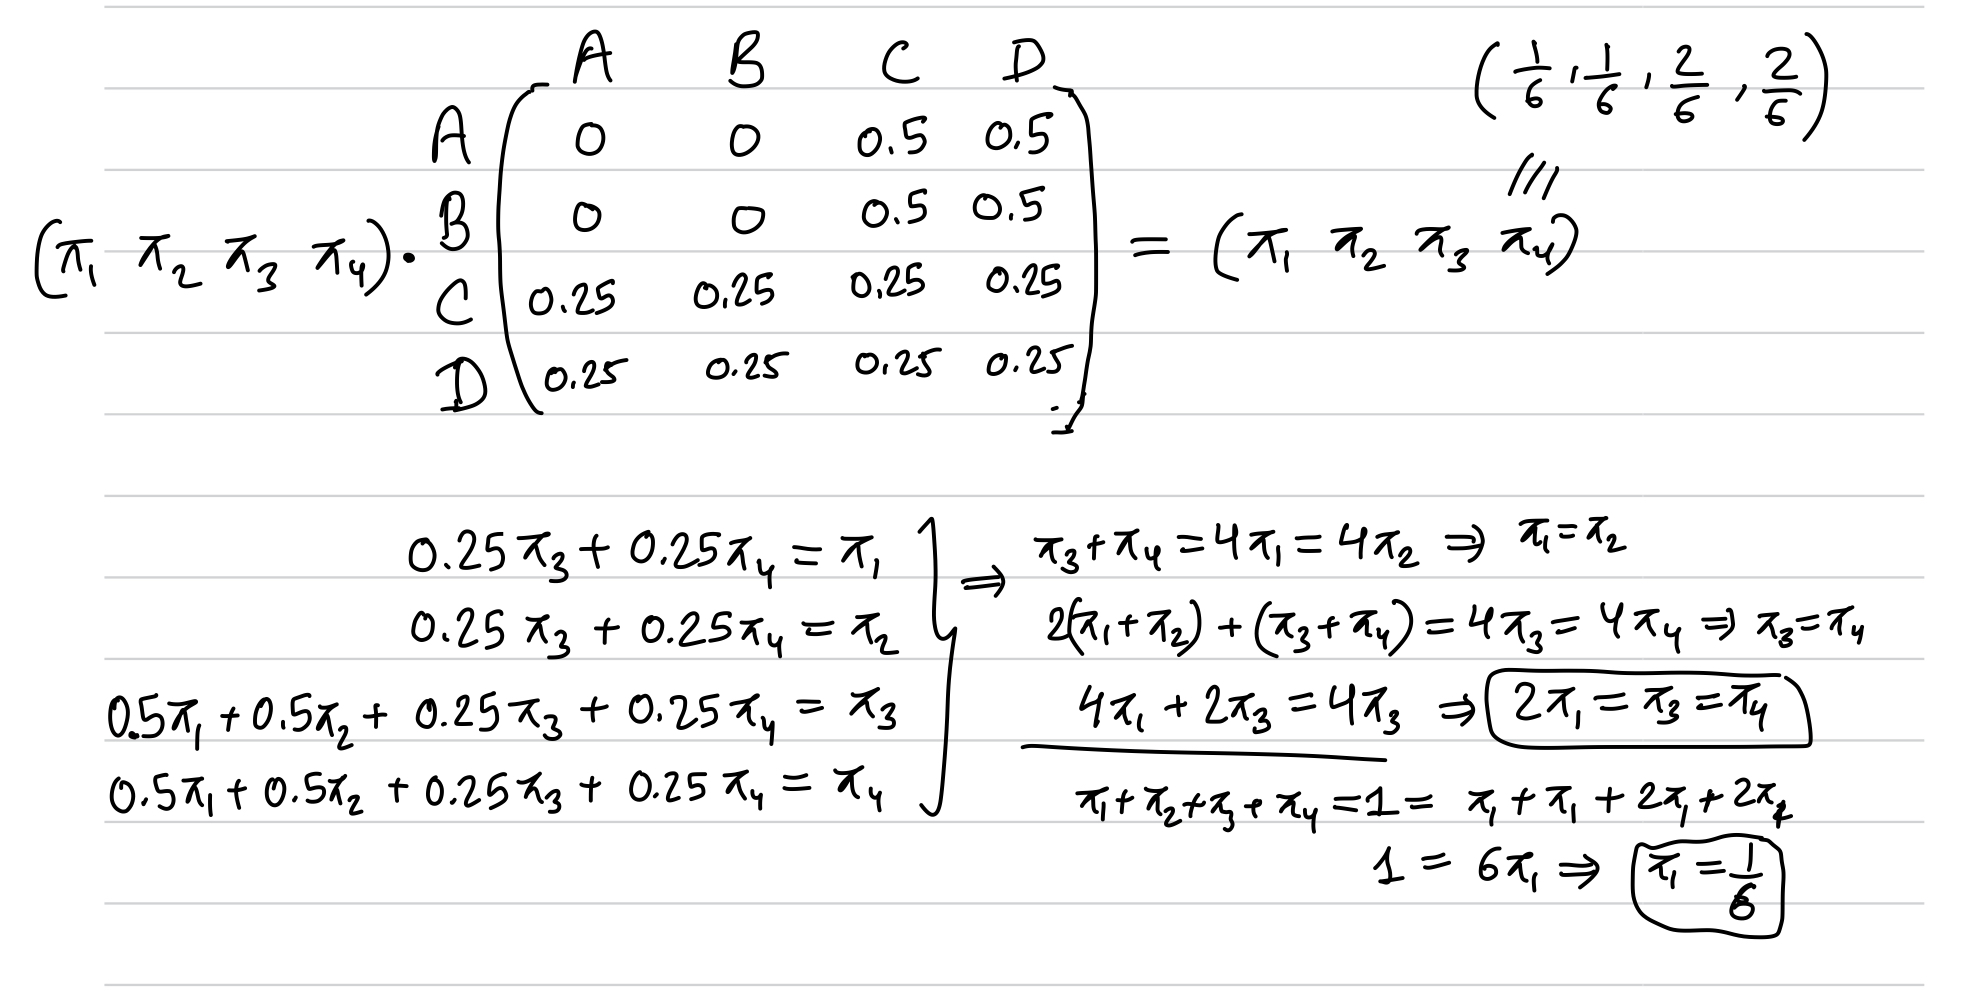 A B C D
(1/6, 1/6, 2/6, 2/6)
A 0 0 0.5 0.5
B 0 0 0.5 0.5
(π₁ π₂ π₃ π₄) · = (π₁ π₂ π₃ π₄)
C 0.25 0.25 0.25 0.25
D 0.25 0.25 0.25 0.25
0.25π₃ + 0.25π₄ = π₁
0.25π₃ + 0.25π₄ = π₂
0.5π₁ + 0.5π₂ + 0.25π₃ + 0.25π₄ = π₃
0.5π₁ + 0.5π₂ + 0.25π₃ + 0.25π₄ = π₄
⇒ π₃ + π₄ = 4π₁ = 4π₂ ⇒ π₁ = π₂
2(π₁ + π₂) + (π₃ + π₄) = 4π₃ = 4π₄ ⇒ π₃ = π₄
4π₁ + 2π₃ = 4π₃ ⇒ 2π₁ = π₃ = π₄
π₁ + π₂ + π₃ + π₄ = 1 = π₁ + π₁ + 2π₁ + 2π₁
1 = 6π₁ ⇒ π₁ = 1/6